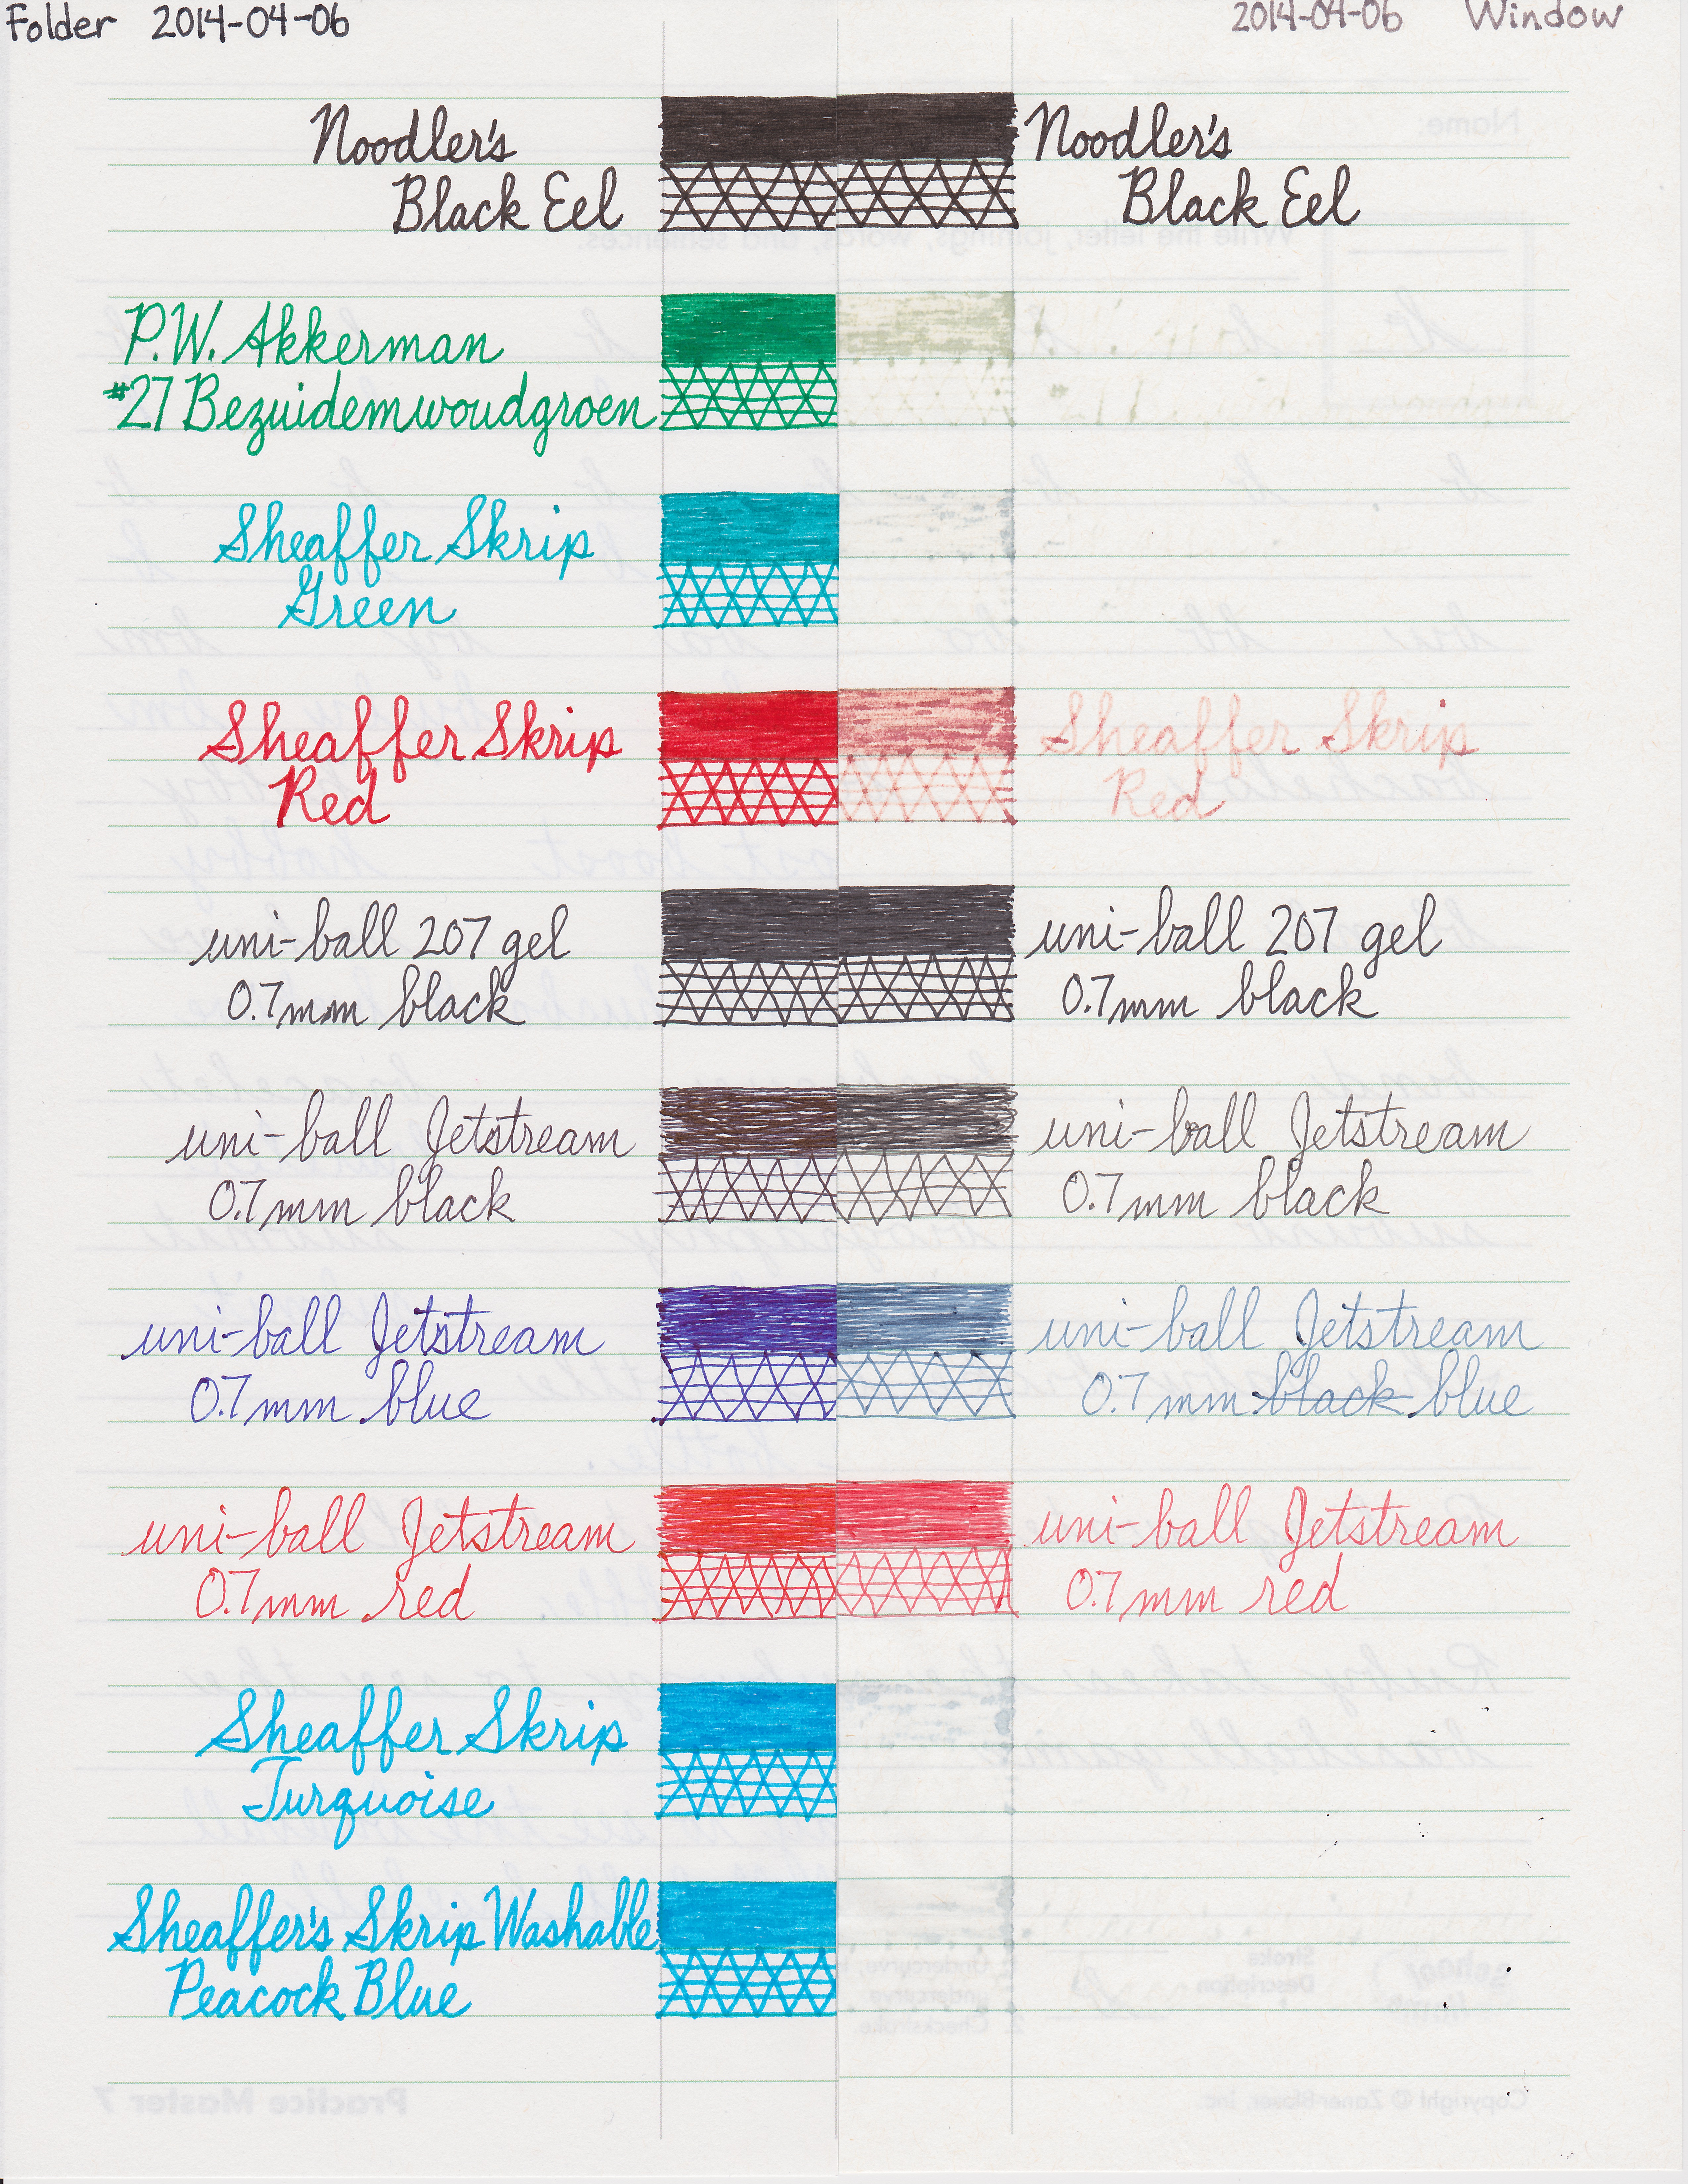 Folder 2014-04-06
2014-04-06 Window
Noodler's
Black Eel
Noodler's
Black Eel
P.W. Akkerman
#27 Bezuidemwoudgroen
Sheaffer Skrip
Green
Sheaffer Skrip
Red
Sheaffer Skrip
Red
uni-ball 207 gel
0.7mm black
uni-ball 207 gel
0.7mm black
uni-ball Jetstream
0.7mm black
uni-ball Jetstream
0.7mm black
uni-ball Jetstream
0.7mm blue
uni-ball Jetstream
0.7mm black blue
uni-ball Jetstream
0.7mm red
uni-ball Jetstream
0.7mm red
Sheaffer Skrip
Turquoise
Sheaffer's Skrip Washable
Peacock Blue
Name:
Write the letter, joinings, words, and sentences.
Stroke
Description
Practice Master 7
Copyright © Zaner-Bloser, Inc.